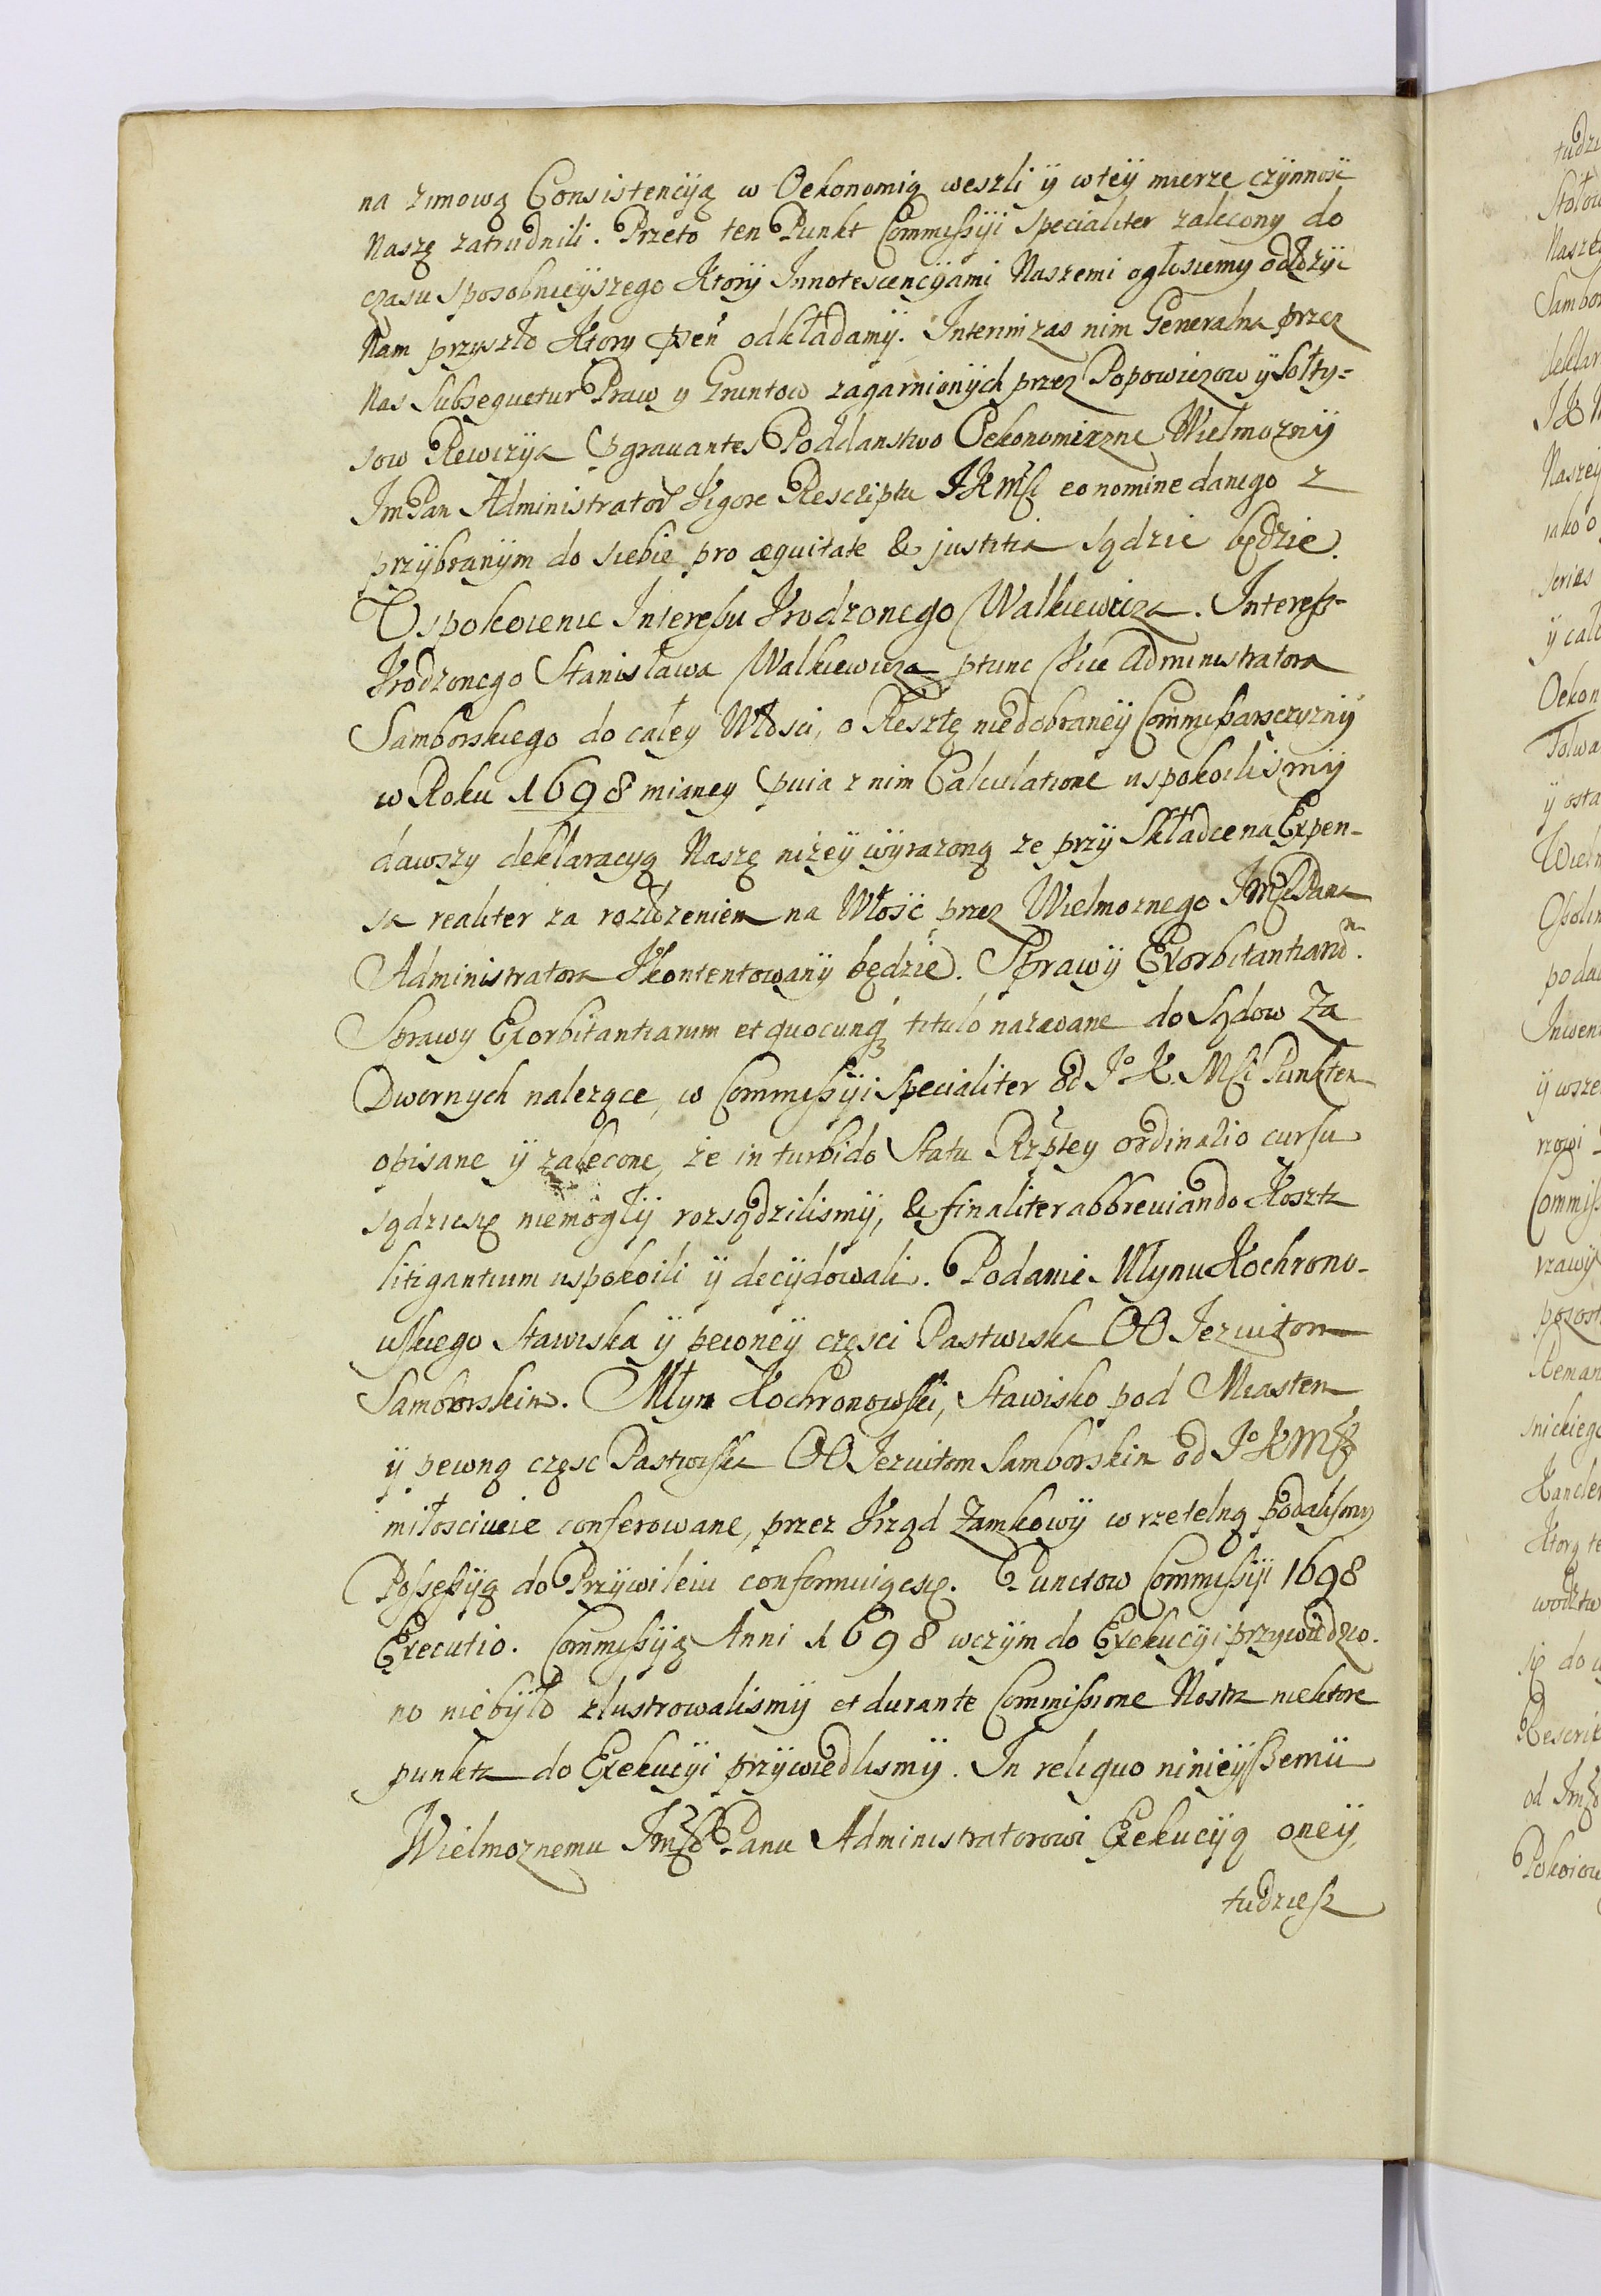 na zimową Consistencÿą w Oekonomią weszli ÿ w teÿ mierze czÿnnosc
Naszę zatrudnili. Przeto ten Punkt Commissÿi specialiter zalecony do
czasu sposobnieÿszego Ktorÿ Innotescencÿami Naszemi ogłosiemy odłozÿc
Nam przyszło Ktory pñ odkładamÿ. Interim zas nim Generalna przez
Nas Subsequetur Praw y Gruntow zagarnionÿch przez Popowiczow ÿ Sołty=
sow Rewizÿa Aggrauantes Poddanstwo Oekonomiczne Wielmoznÿ
ImPan Administrator Vigore Rescriptu JKMsci eo nomine danego z
przÿbranÿm do siebie pro æquitate & justitia sądzic będzie.
Uspokoienie Interessu Vrodzonego Walkiewicza. Interess
Vrodzonego Stanisława Walkiewicza ptunc Vice Administratora
Samborskiego do całey Włosci, o Resztę niedobraneÿ Commissarsczyznÿ
w Roku 1698 mianey pvia z nim Calculatione uspokoilismÿ
dawszy deklaracyą Naszę nizeÿ wÿrazoną ze przÿ Składce na Expen-
sa realiter za rozłozeniem na Włość przez Wielmoznego JmsciPana
Administratora Vkontentowanÿ będzie. Sprawÿ Exorbitantiarum.
Sprawy Exorbitantiarum et quocunq titulo nazwane do Sądow Za
Dwornych nalezące, w Commissÿi specialiter od Jo K. Msci Punktem
opisane ÿ zalecone, że in turbido Statu Rzptey ordinario cursu
sądzic się niemogłÿ rozsądzilismÿ, & finaliter abbreuiando Koszta
litigantium uspokoili ÿ decÿdowali. Podanie Młynu Kochrono-
wskiego Stawiska ÿ pewneÿ częsci Pastwiska OO Iezuitom
Samborskim. Młyn Kochronowski, Stawisko pod Miastem
ÿ pewną częsc Pastwiska OO Iezuitom Samborskim od Jo KMsci
miłosciwie conferowane, przez Vrząd Zamkowÿ w rzetelną podalismy
Possessÿą do Przÿwileiu conformuiąc się. Punctow Commissÿi 1698
Executio. Commissÿą Anni 1698 w czÿm do Exekucÿi przywiedzio-
no niebÿło zlustrowalismÿ et durante Commissione Nostra niektore
punkta do Exekucÿi przÿwiedlismÿ. In reliquo ninieÿszemu
Wielmoznemu Jmsci Panu Administratorowi Exekucÿą oneÿ,
tudziesz